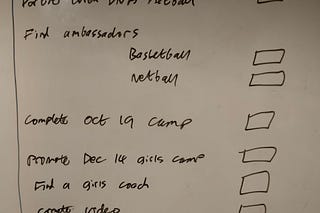 Find ambassadors
Basketball
Netball
Complete Oct 19 camp
Promote Dec 14 girls camp
Find a girls coach